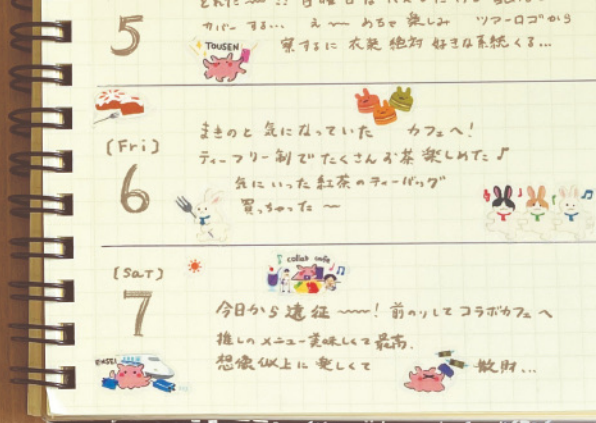 5
カバーする… え〜〜 めちゃ楽しみ ツアーロゴから
TOUSEN
察するに 衣装 絶対 好きな系統 くる…
(Fri)
6
まきのと 気になっていた カフェへ!
ティーフリー制で たくさんお茶 楽しめた♪
気にいった 紅茶の ティーバッグ
買っちゃった 〜
(SaT)
7
collab cafe
今日から 遠征 〜〜! 前のりして コラボカフェへ
推しの メニュー 美味しくて 最高.
想像以上に 楽しくて 散財...
ENSEI